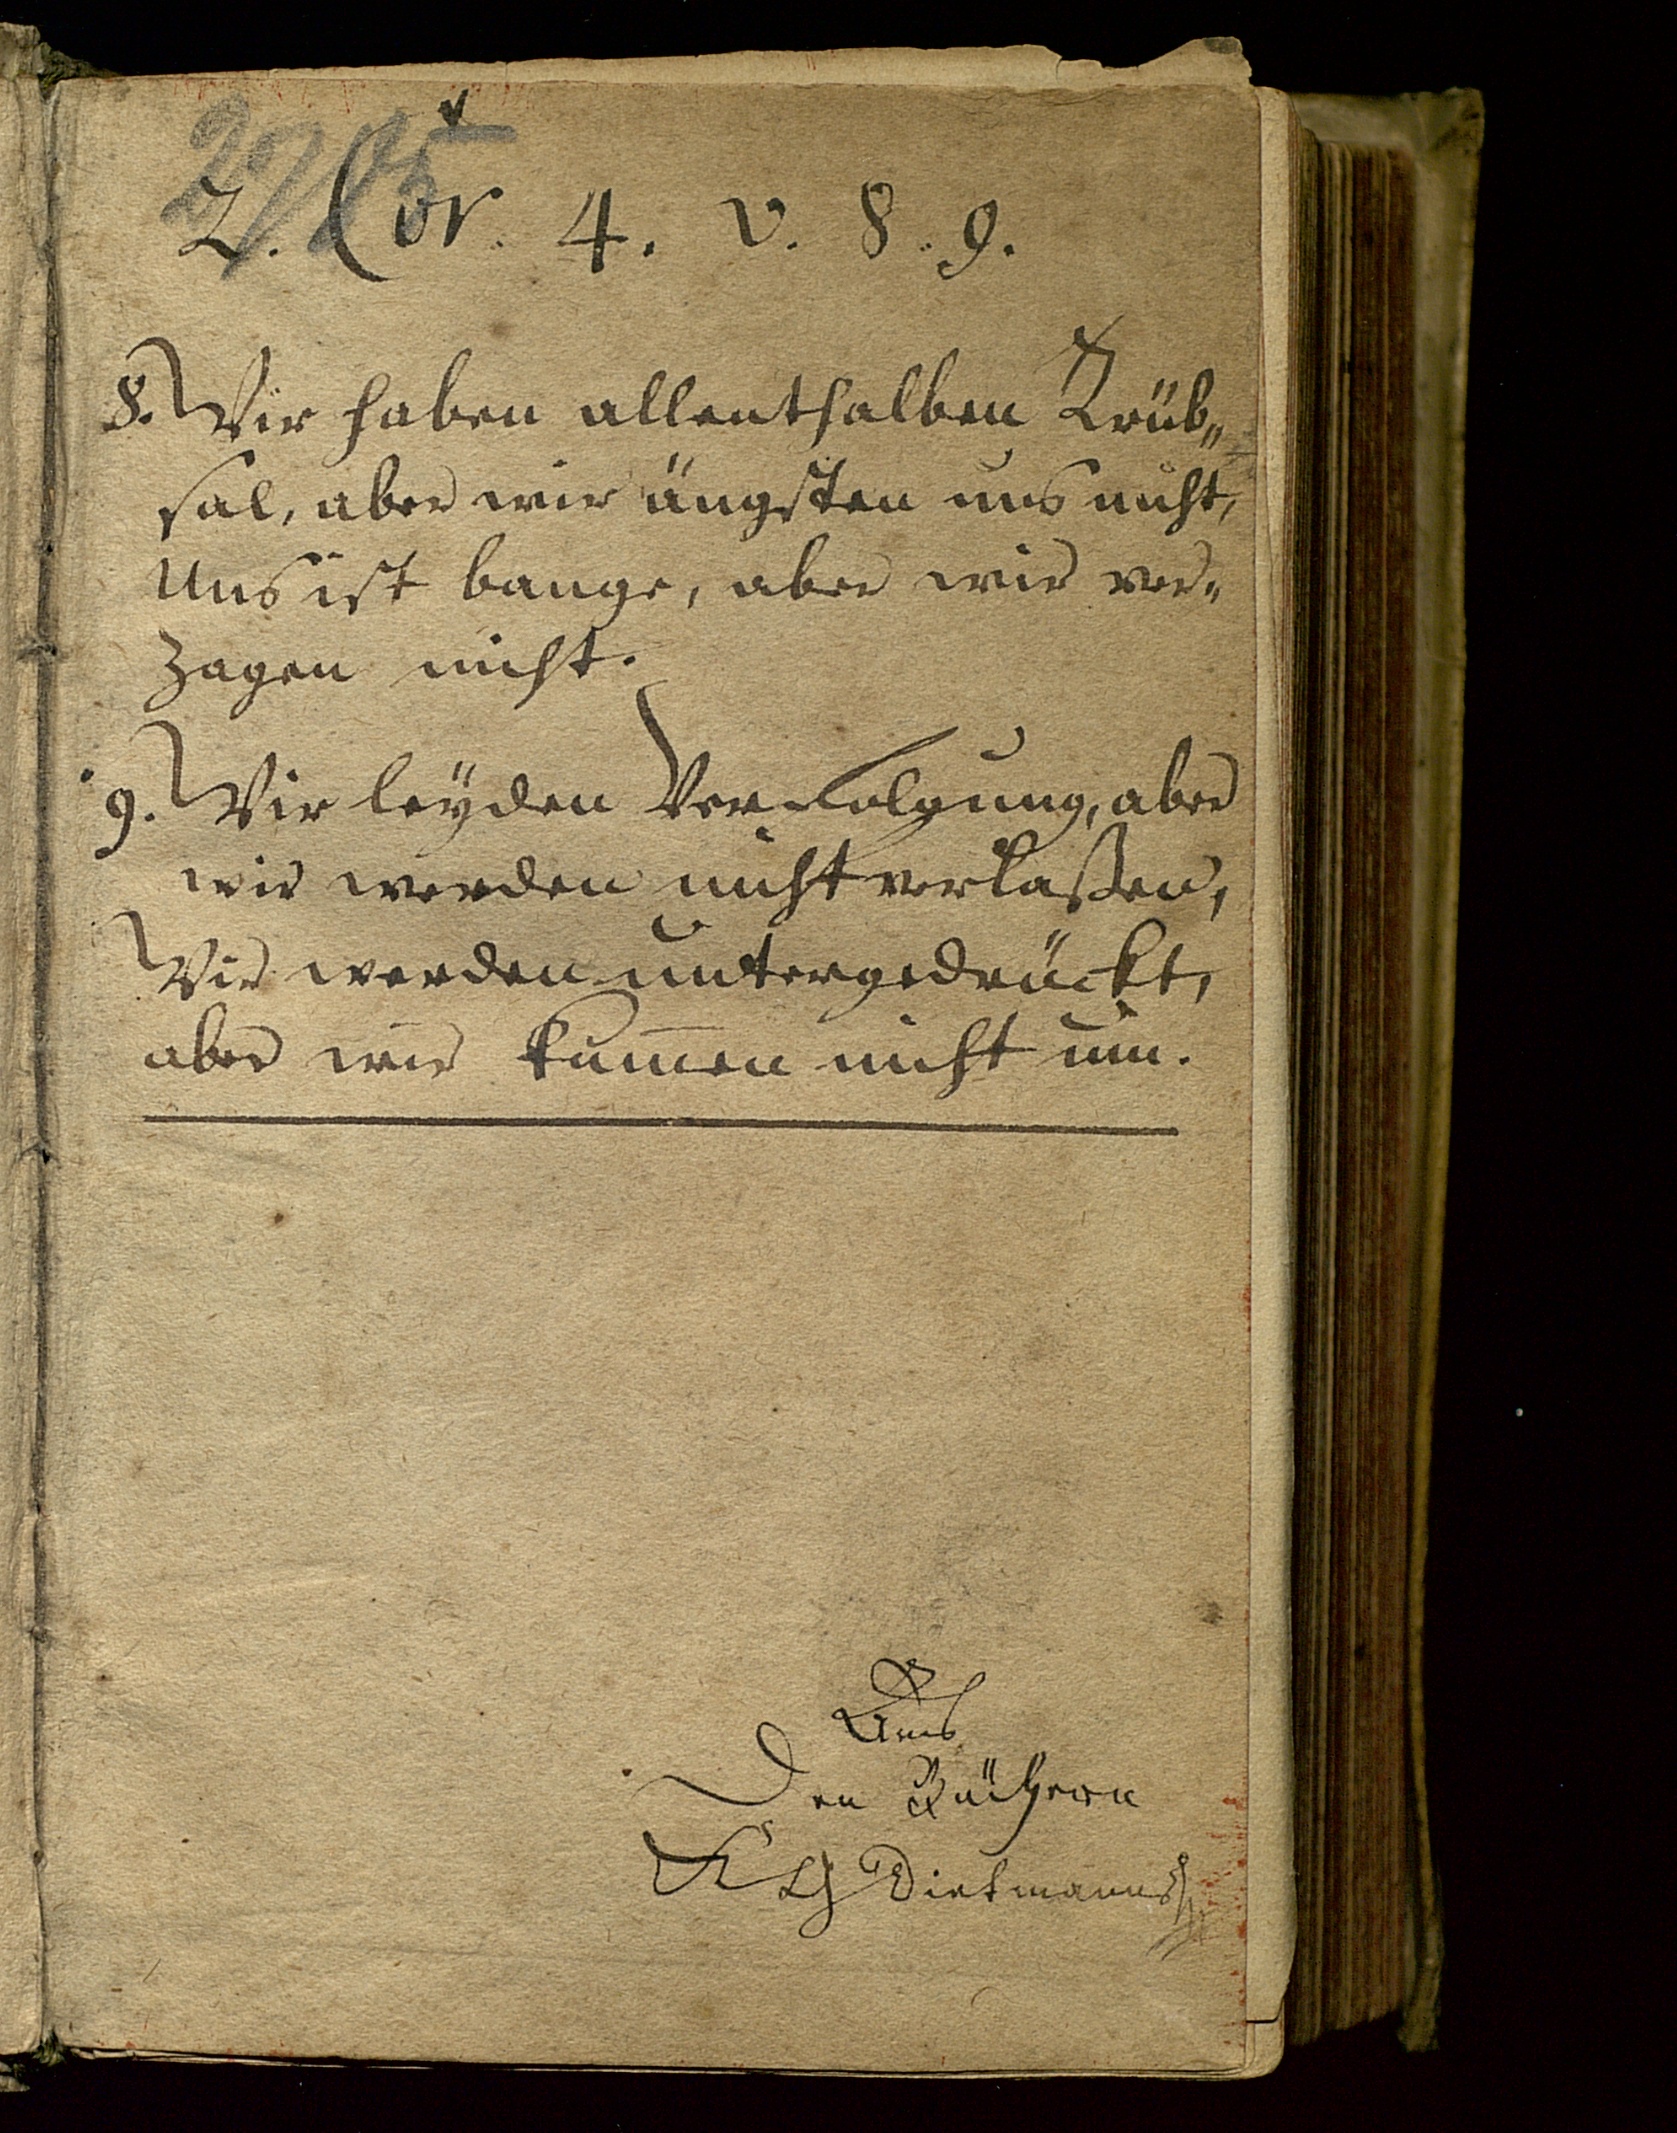 2. Cor. 4. v. 8. 9.
8. Wir haben allenthalben Trüb„
sal, aber wir ängsten uns nicht,
Uns ist bange, aber wir ver„
zagen nicht.
9. Wir leÿden Verfolgung, aber
wir werden nicht verlaßen,
Wir werden untergedrückt,
aber wir kum̄en nicht um.
Aus
Den Büchern
Dietmanns